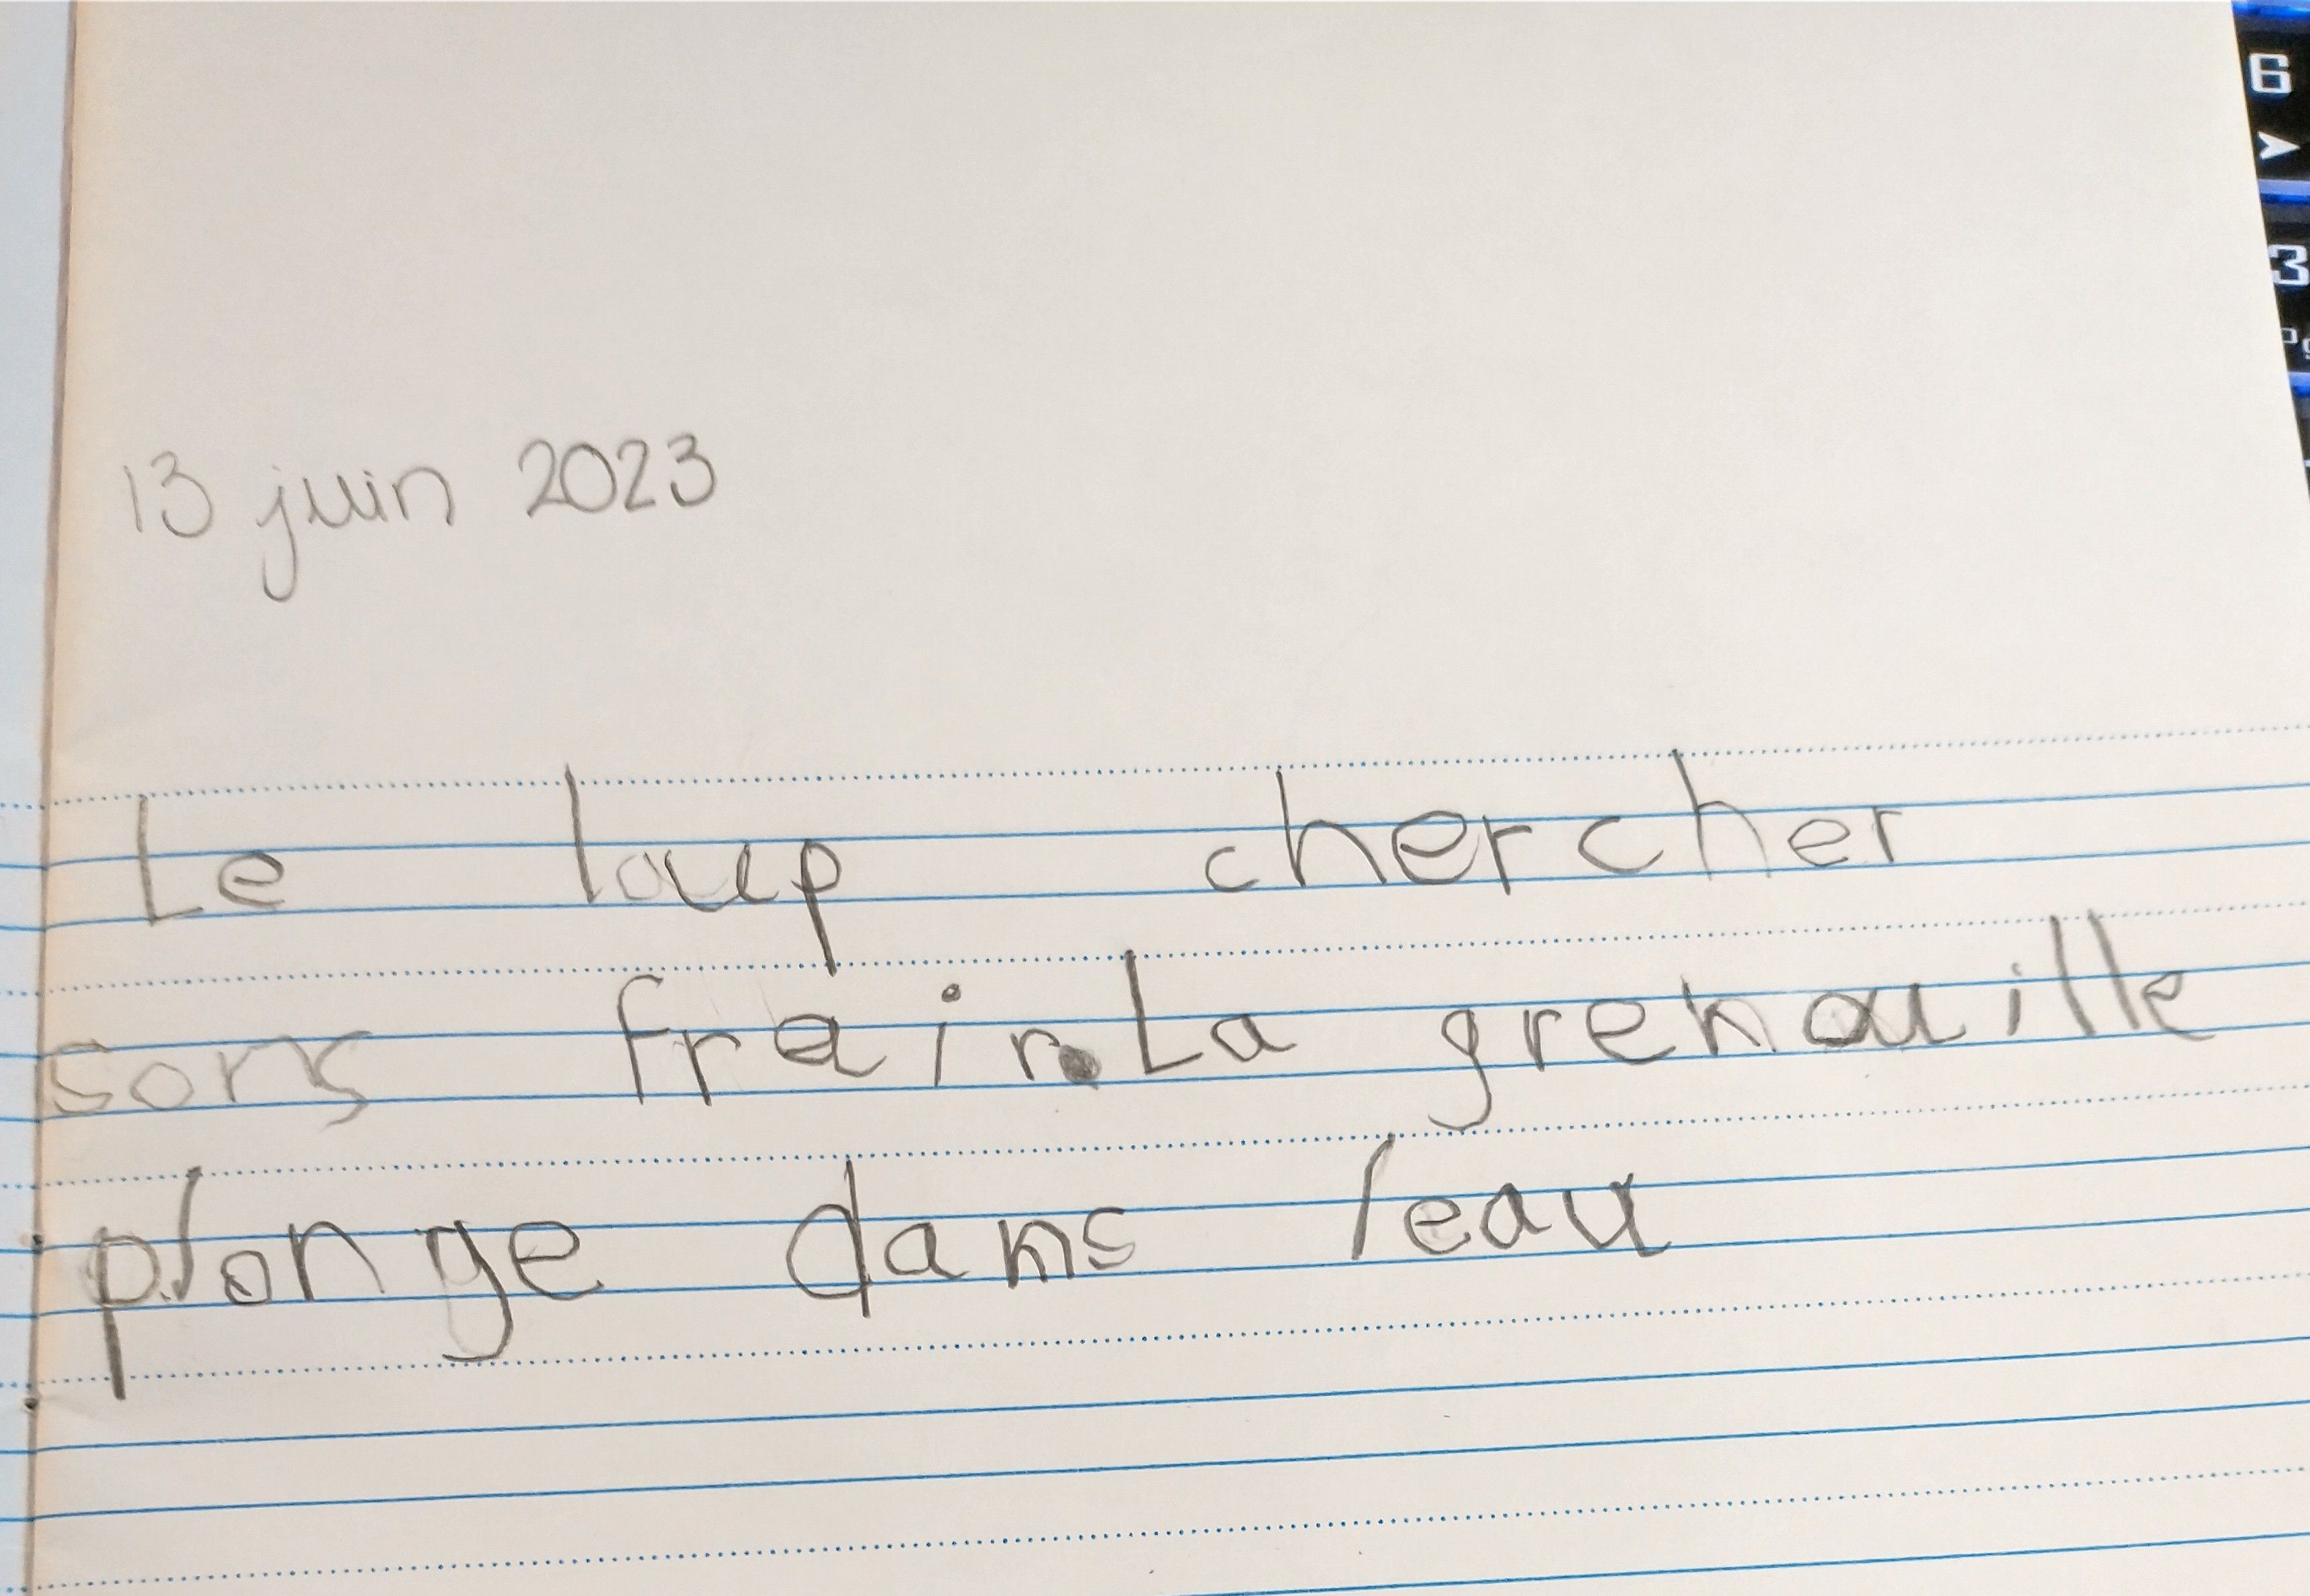 6
3
13 juin 2023
Le loup chercher
sons frair.La grenouille
plonge dans leau